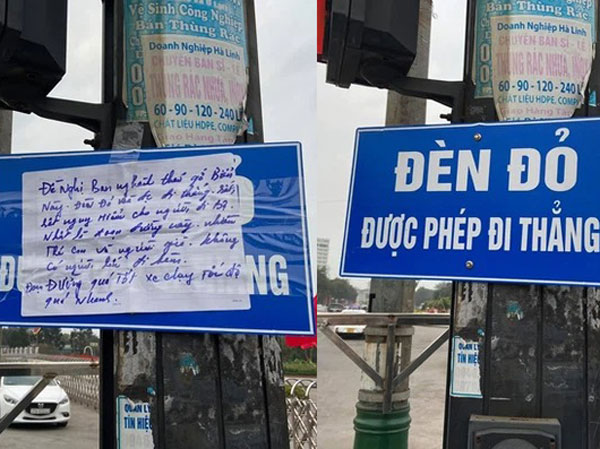 Vệ Sinh Công Nghiệp
Bán Thùng Rác
Doanh Nghiệp Hà Linh
CHUYÊN BÁN SỈ - LẺ
THÙNG RÁC NHỰA,
60 - 90 - 120 - 240
CHẤT LIỆU HDPE, COMP
Đề Nghị Ban nghành thu gỡ Biển
Này. Đèn Đỏ vẫn đc đi thẳng. Rất
rất nguy Hiểm cho người đi Bộ.
Nhất là đoạn đường này nhiều
Trẻ con và người già. Không
có người lớn đi kèm.
Đoạn Đường quá Tốt xe chạy Tốc độ
quá Nhanh.
QUẢN LÝ
TÍN HIỆ
Bán Thùng Rác
Doanh Nghiệp Hà Linh
CHUYÊN BÁN SỈ - LẺ
THÙNG RÁC NHỰA,
60 - 90 - 120 - 240 L
CHẤT LIỆU HDPE, COMPO
Giao Hàng Tận
ĐÈN ĐỎ
ĐƯỢC PHÉP ĐI THẲNG
QUẢN LÝ
TÍN HIỆ